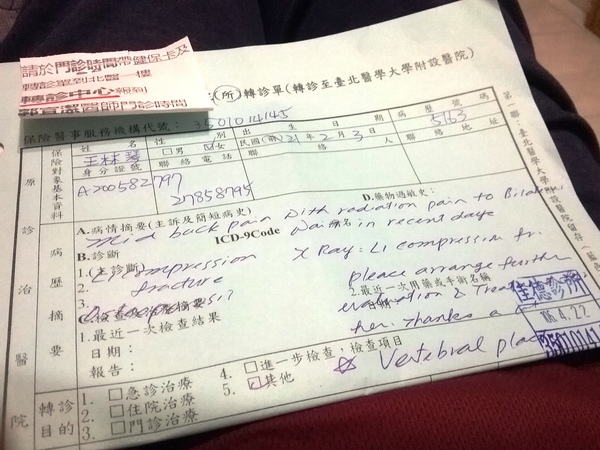 請於門診時間帶健保卡及
轉診單到北醫一樓
轉診中心報到
郭宜潔醫師門診時間
(所)轉診單(轉診至臺北醫學大學附設醫院)
保險醫事服務機構代號：3501014145
姓名 性別 出生日期 病歷號碼
王林琴 □男 女 民國(前)21年2月3日 5163
身分證號 聯絡電話 聯絡人 聯絡地址
A200582797 27858795
保險對象基本資料
原診治醫院
病歷摘要
A.病情摘要(主訴及簡短病史) D.藥物過敏史：
Mid back pain with radiation pain to Bilateral
in recent days
B.診斷 ICD-9Code
1.(主診斷) L1 compression
2. fracture
3.
X Ray: L1 compression fr.
please arrange further
C.檢查及治療摘要
1.最近一次檢查結果 2.最近一次用藥或手術名稱
evaluation & Treat
日期：
her. Thanks a
報告：
佳德診所
106.4.22
Vertebral plac
轉診目的
1.□急診治療 4.□進一步檢查，檢查項目
2.□住院治療 5.其他
3.□門診治療
第一聯：臺北醫學大學附設醫院留存